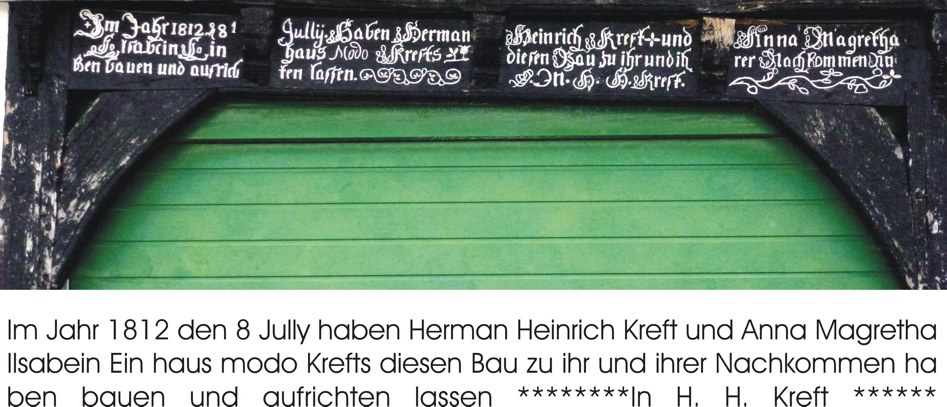 Im Jahr 1812 Jully Haben Herman Heinrich Kreft und Anna Magretha
haus Modo Krefts diesen Bau zu ihr und ih rer Nachkommen
ben bauen und aufrich ten lassen. H. H. Kreft.
Im Jahr 1812 den 8 Jully haben Herman Heinrich Kreft und Anna Magretha
Ilsabein Ein haus modo Krefts diesen Bau zu ihr und ihrer Nachkommen ha
ben bauen und aufrichten lassen ********In H. H. Kreft ******